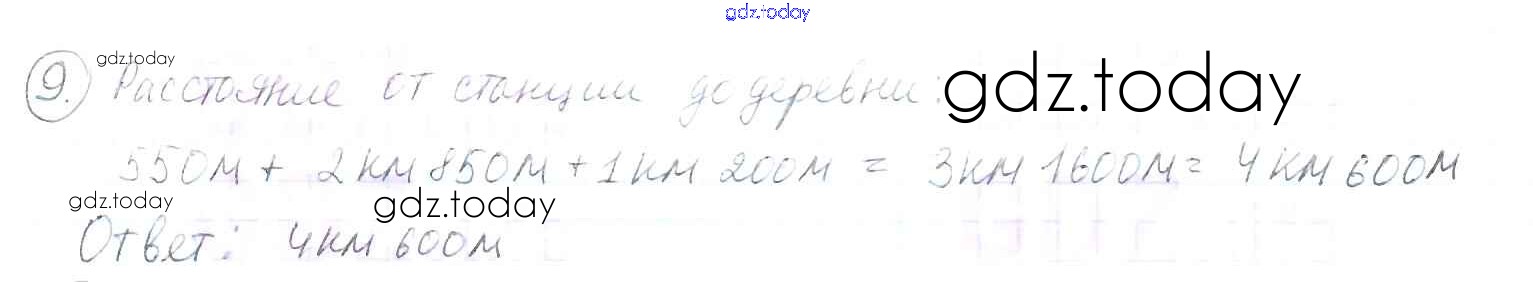 gdz.today
gdz.today
9. Расстояние от станции до деревни: gdz.today
550м + 2 км 850м + 1 км 200м = 3км 1600м = 4 км 600м
gdz.today gdz.today
Ответ: 4км 600м